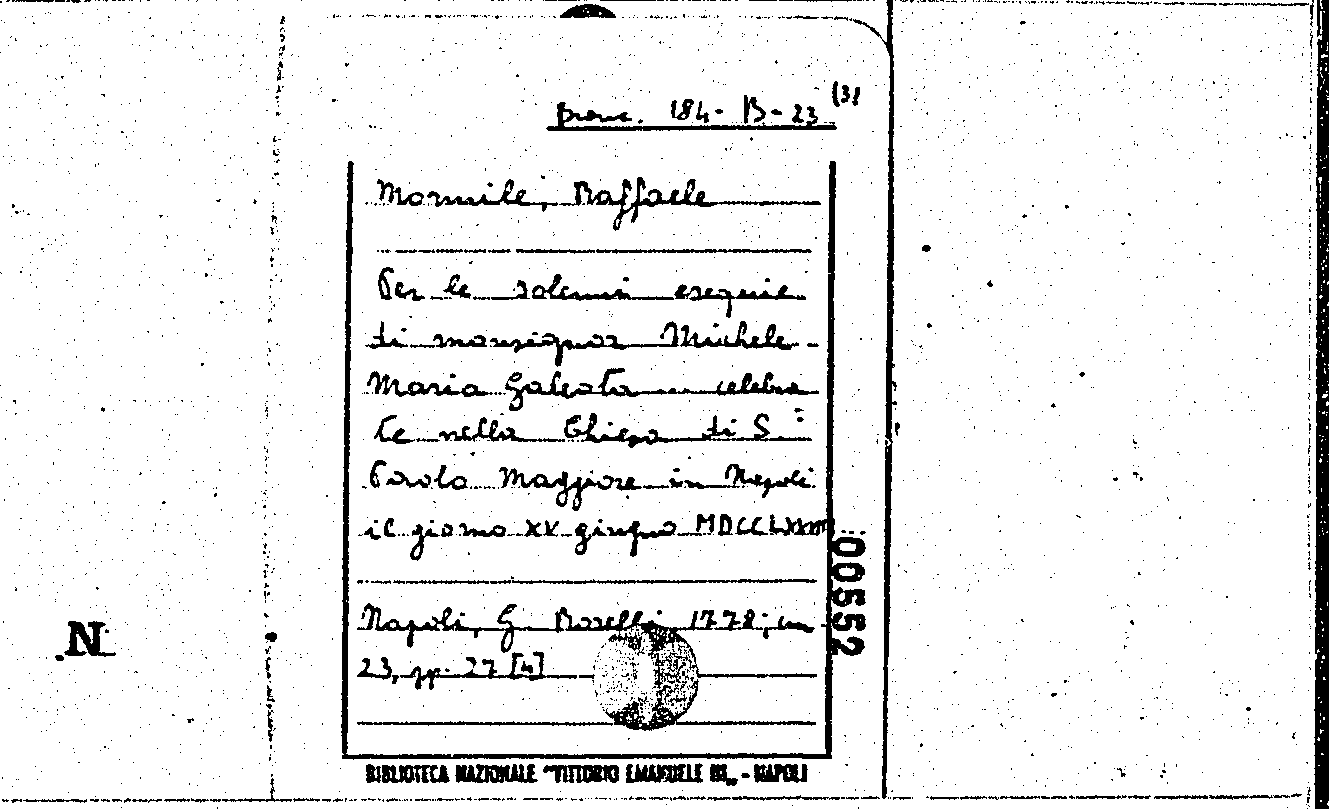 Branc. 184-B-23 (3)
Mormile, Raffaele
Per le solenni esequie
di monsignor Michele
Maria Galeota ... celebra
te nella Chiesa di S.
Paolo Maggiore in Napoli
il giorno XV giugno
Napoli, G. 1778; cm
23, pp. 27 [4]
00552
N
BIBLIOTECA NAZIONALE "VITTORIO EMANUELE III„ - NAPOLI